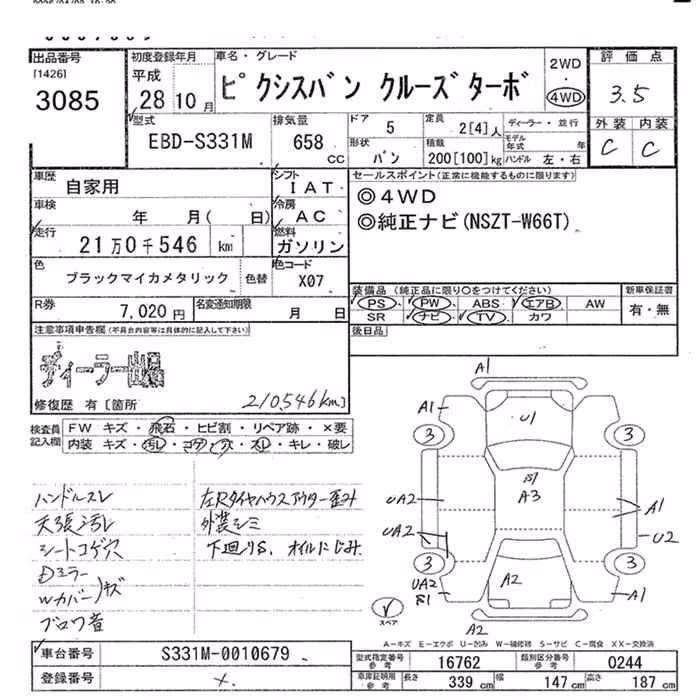 出品番号
[1426]
3085
初度登録年月
平成
28 10 月
車名・グレード
ピクシスバン クルーズターボ
2WD
・
4WD
評価点
3.5
外装 内装
C C
型式
EBD-S331M
排気量
658
CC
ドア
5
定員
2[4]人
ディーラー・並行
モデル年式 年
形状
バン
積載
200[100]kg
ハンドル 左・右
車歴
自家用
シフト
IAT
セールスポイント(正常に機能するものに限ります)
◎4WD
◎純正ナビ(NSZT-W66T)
車検
年 月( 日)
冷房
AC
走行
21万0千546 km
燃料
ガソリン
色
ブラックマイカメタリック
色替
色コード
X07
装備品 (純正品に限り○をつけてください)
PS・PW・ABS エアB・AW
SR ナビ・TV・カワ
新車保証書
有・無
R券
7,020円
名変通知期限
月 日
後日品
注意事項申告欄(不具合内容等は具体的に記入して下さい)
ディーラー出品
210546km)
修復歴 有[箇所
検査員記入欄
FW キズ・飛石・ヒビ割・リペア跡・×要
内装 キズ・汚レ・コゲ・穴・スレ・キレ・破レ
ハンドルスレ
天張汚レ
シートコゲ穴
Dミラー
Wカバー)キズ
ブロワ音
左Rタイヤハウスアウター歪み
外装シミ
下廻りS、オイルにじみ
A1
A1
U1
3
3
A3
UA2
A1
UA2
U2
3
3
UA2
A2
A1
A2
スペア
A-キズ E-エクボ U-凹み W-補修跡 S-サビ C-腐食 XX-交換済
車台番号
S331M-0010679
登録番号
×
型式指定番号
参考
16762
類別区分番号
参考
0244
車庫証明用
参考
長さ
339 cm
幅
147 cm
高さ
187 cm